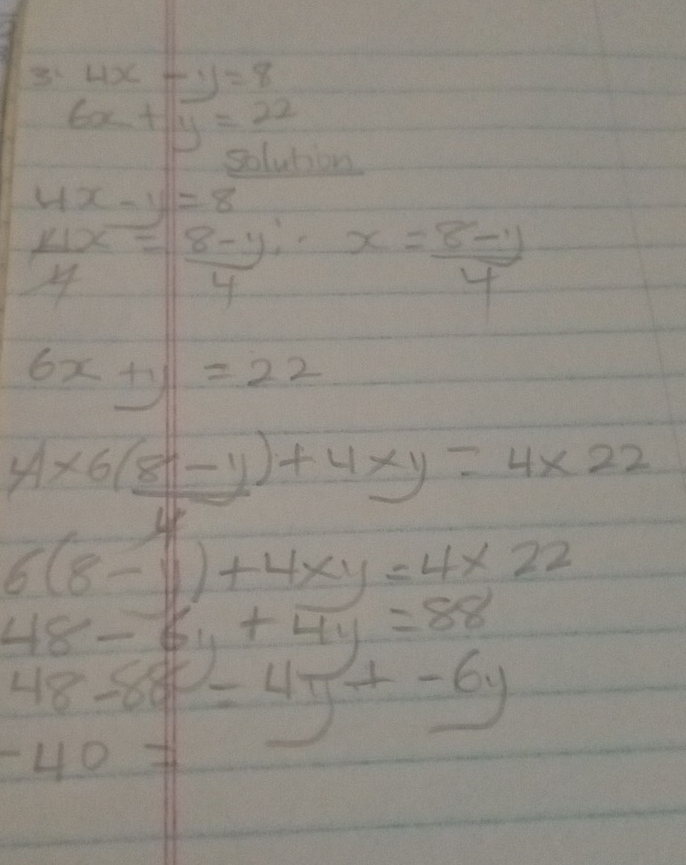 3. 4x - y = 8
6x + y = 22
Solution
4x - y = 8
4x = 8-y ∴ x = 8-y
4 4 4
6x + y = 22
4 × 6(8 - y) + 4 × y = 4 × 22
4
6(8 - y) + 4 × y = 4 × 22
48 - 6y + 4y = 88
48 - 88 = 4y + -6y
-40 =